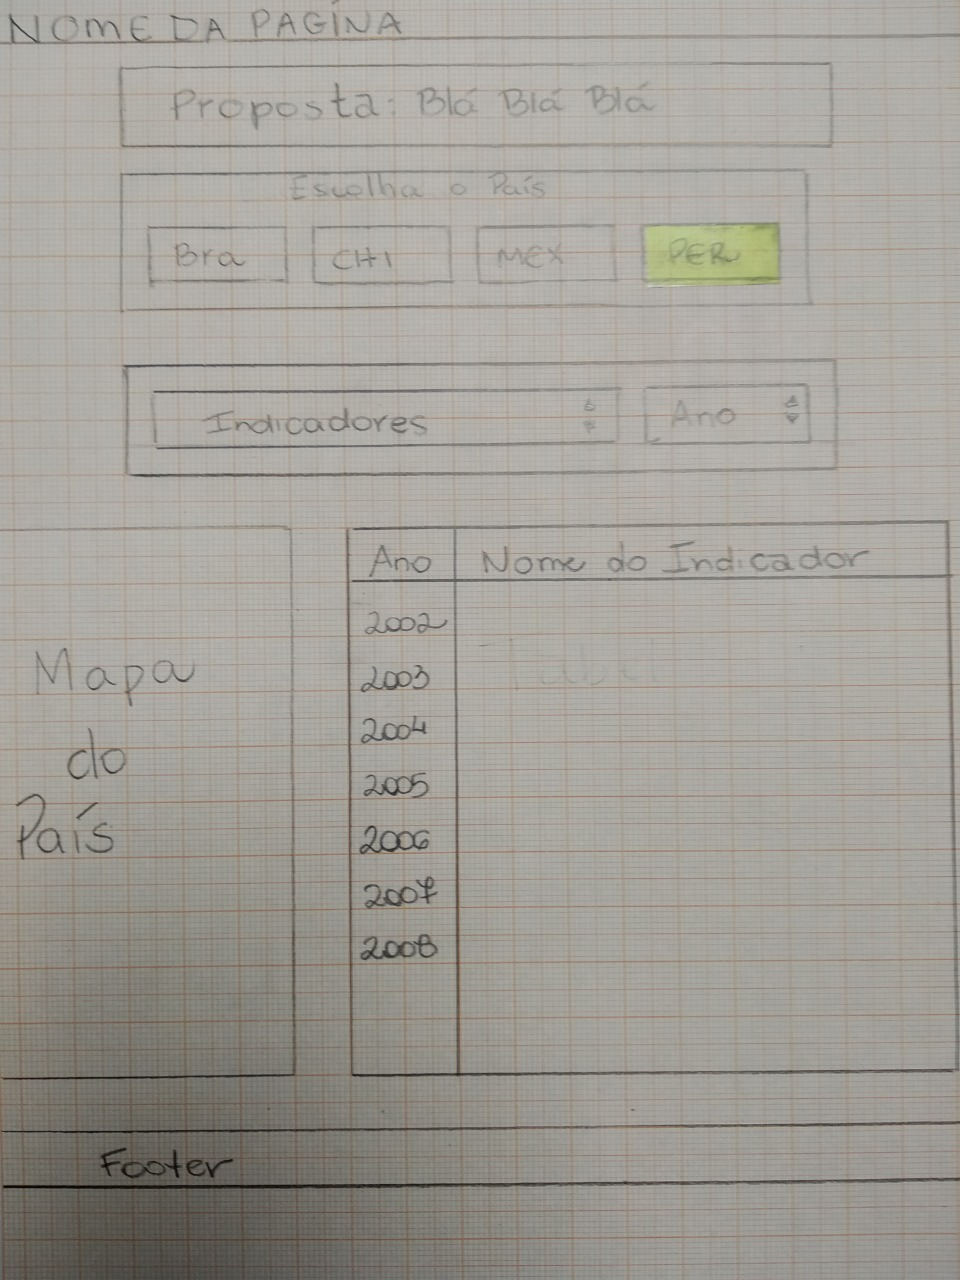 NOME DA PAGÍNA
Proposta: Blá Blá Blá
Escolha o País
Bra CHI MEX PER
Indicadores Ano
Ano Nome do Indicador
2002
2003
2004
2005
2006
2007
2008
Mapa
do
País
Footer